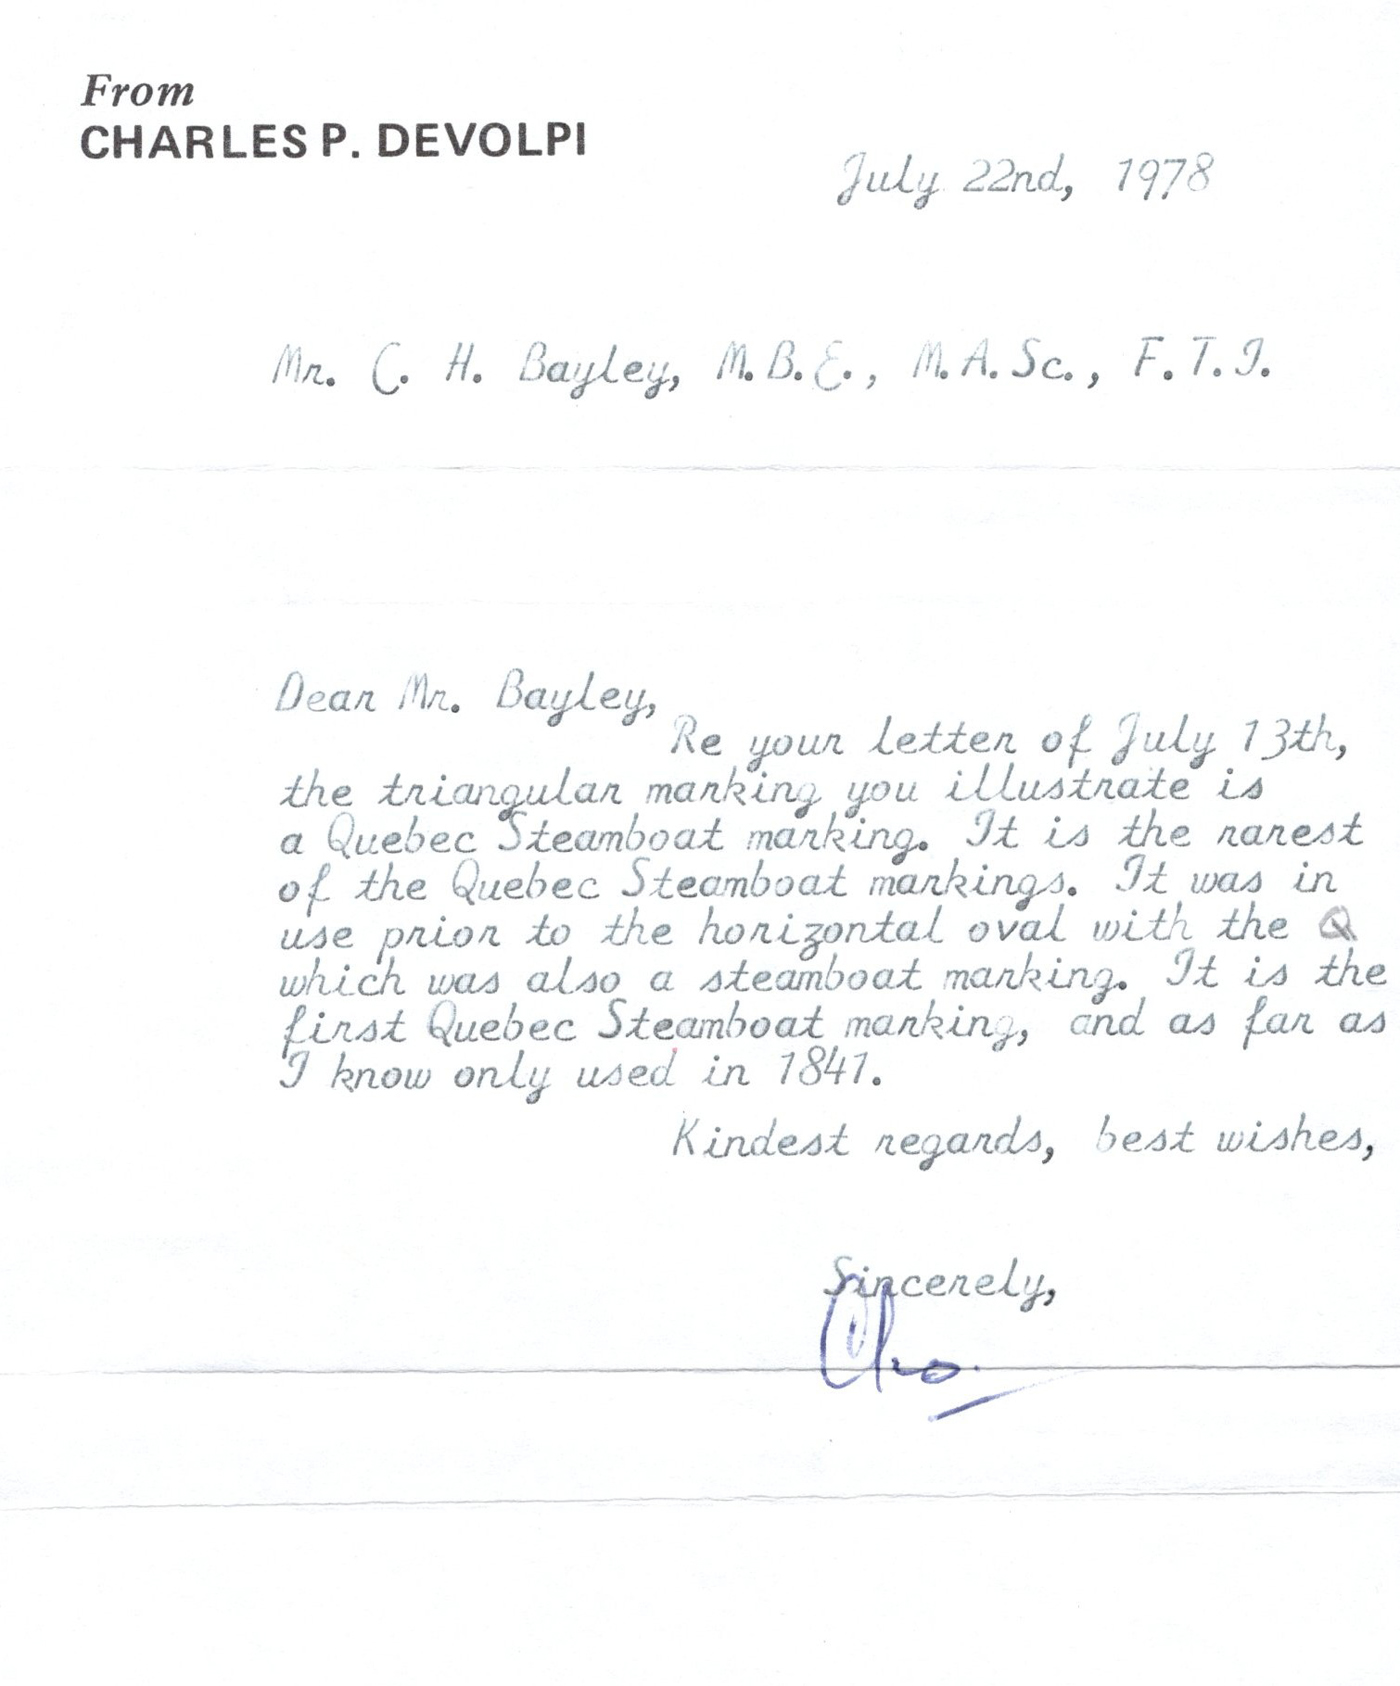 From
CHARLES P. DEVOLPI
July 22nd, 1978
Mr. C. H. Bayley, M.B.E., M.A.Sc., F.T.I.
Dear Mr. Bayley,
Re your letter of July 13th,
the triangular marking you illustrate is
a Quebec Steamboat marking. It is the rarest
of the Quebec Steamboat markings. It was in
use prior to the horizontal oval with the Q
which was also a steamboat marking. It is the
first Quebec Steamboat marking, and as far as
I know only used in 1841.
Kindest regards, best wishes,
Sincerely,